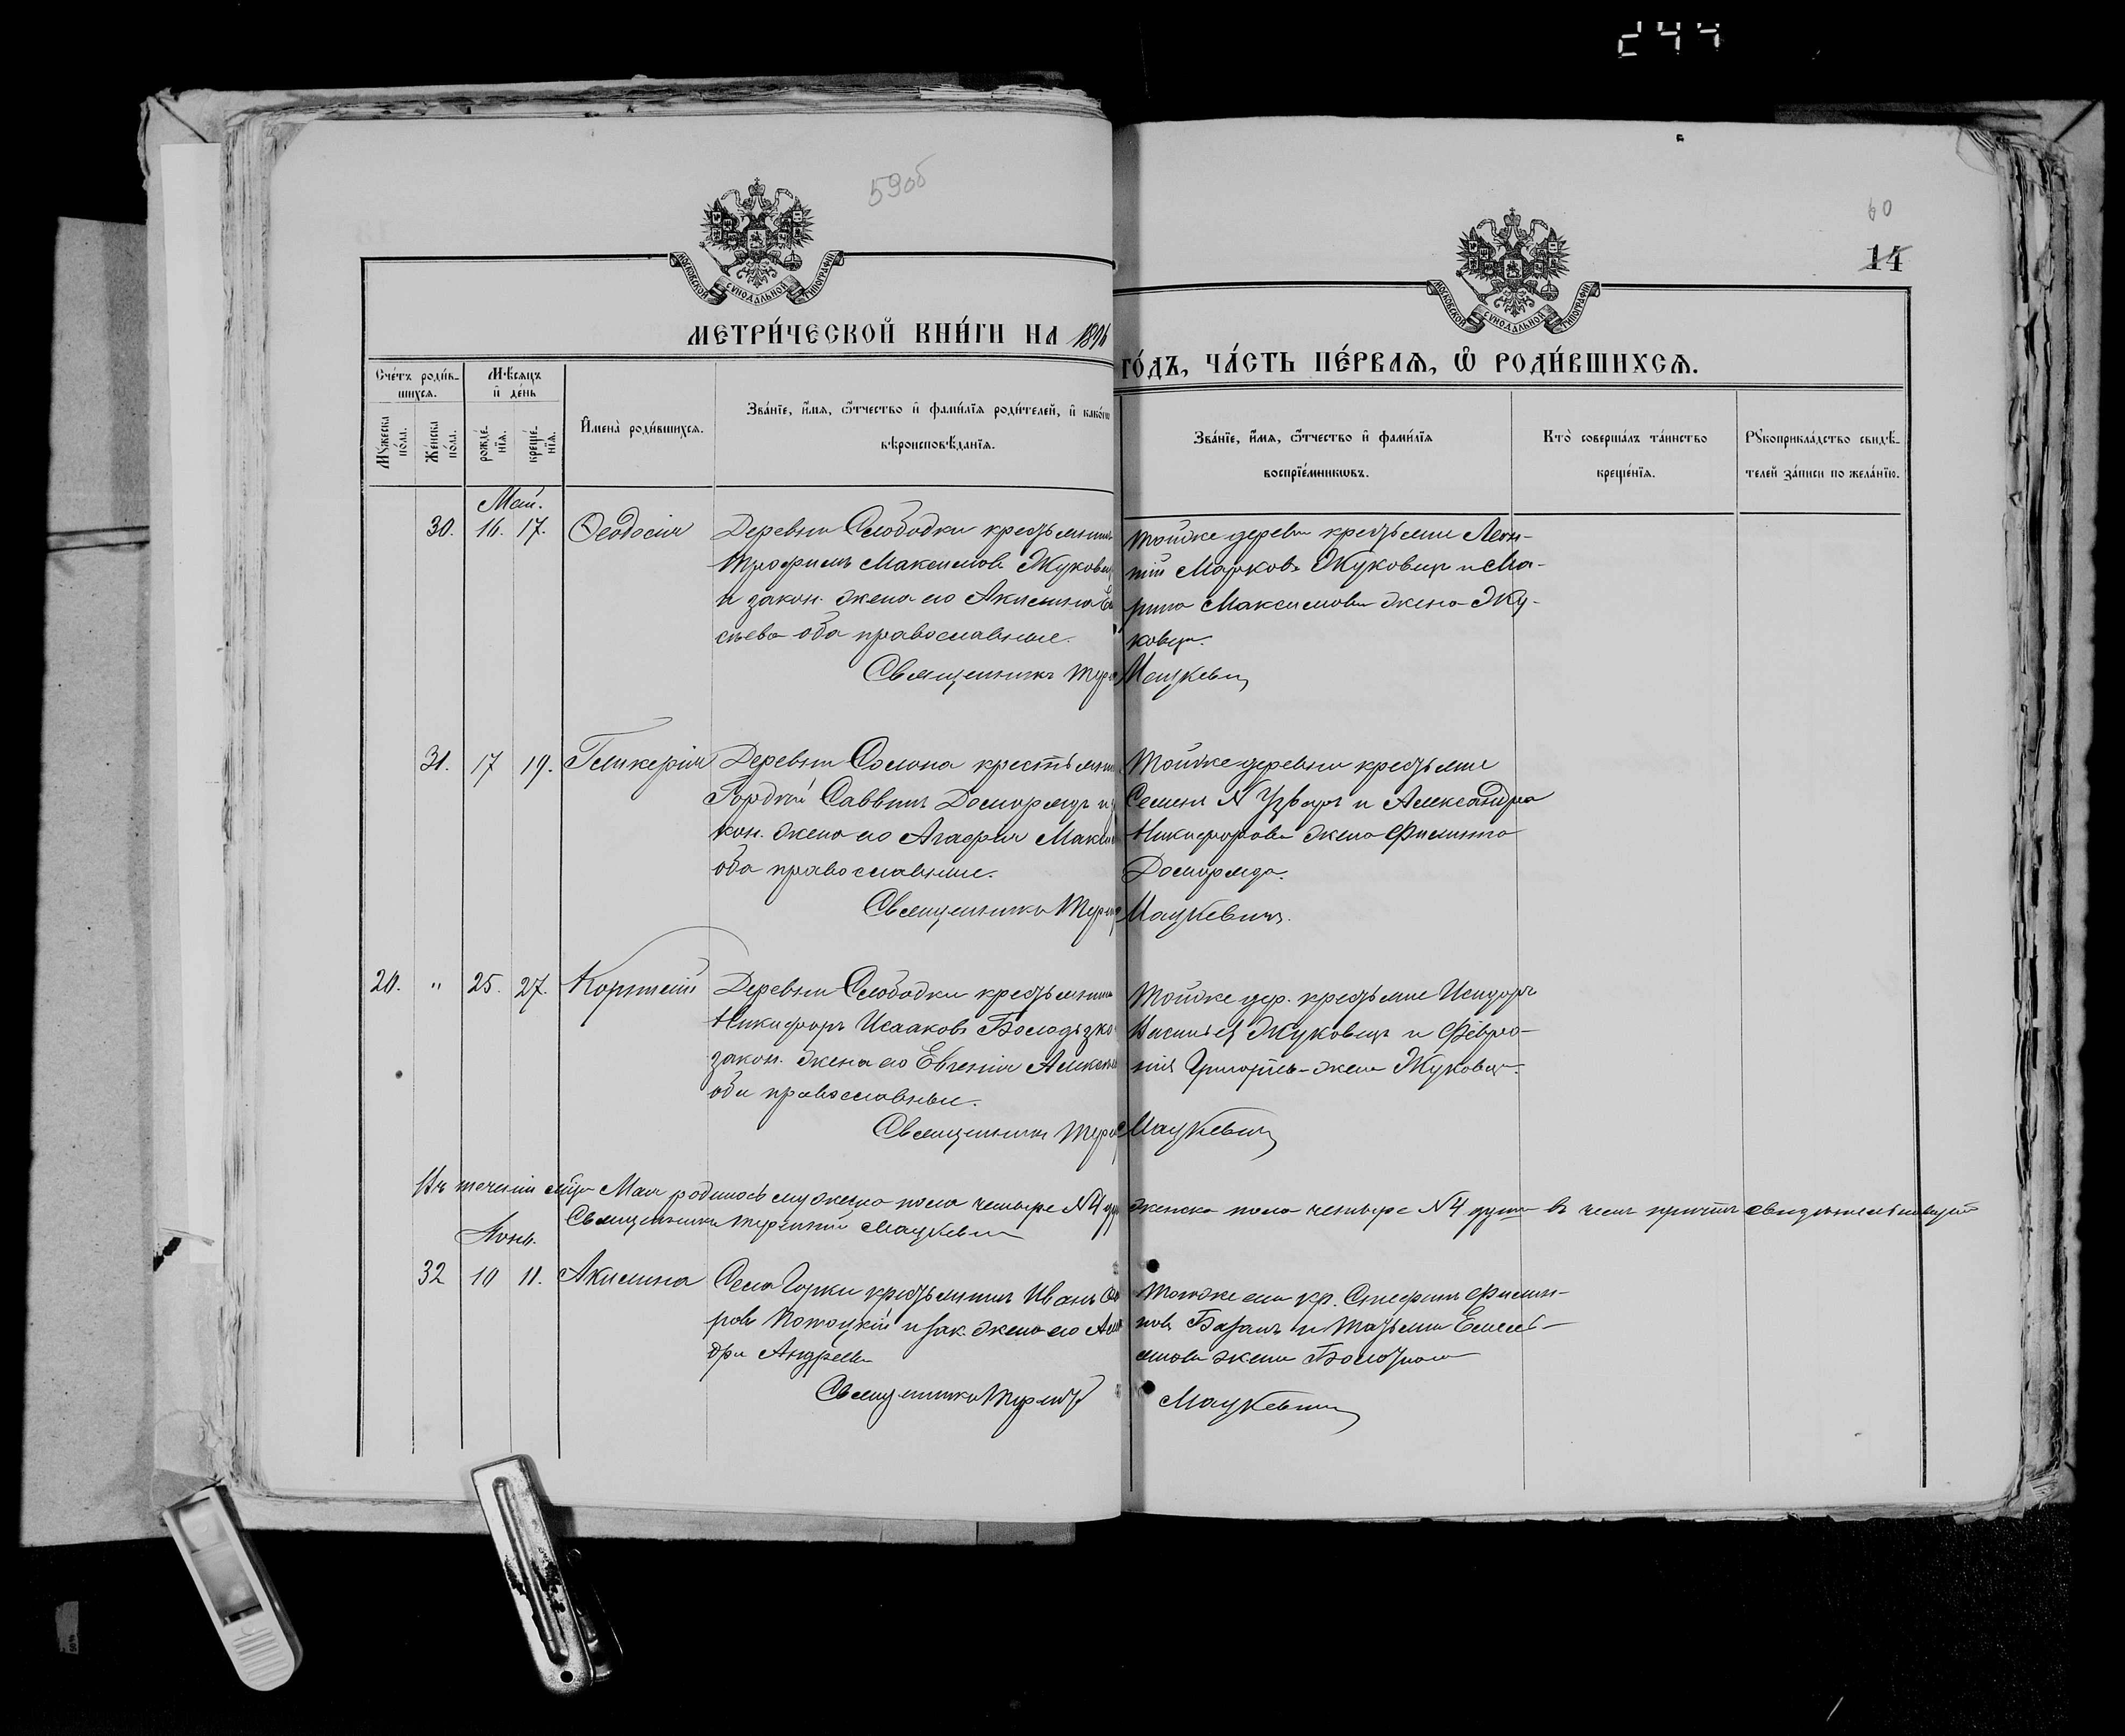 244
59об
60
14
МОСКОВСКОЙ СѴНОДАЛЬНОЙ ТИПОГРАФІИ
МОСКОВСКОЙ СѴНОДАЛЬНОЙ ТИПОГРАФІИ
МЕТРИ́ЧЕСКОЙ КНИ́ГИ НА 1896
ГО́ДЪ, ЧА́СТЬ ПЕ́РВАЯ, Ѡ҆ РОДИ́ВШИХСЯ.
Сче́тъ роди́в-
шихся.
Мѣсяцъ
и҆ де́нь
Мꙋ́жеска по́ла.
Же́нска по́ла.
рожде́-нїя.
креще́-нїя.
И҆мена̀ роди́вшихся.
Зва́нїе, и҆́мя, ѻ҆́тчество и҆ фами́лїя роди́телей, и҆ како́гѡ
вѣроисповѣ́данїя.
Зва́нїе, и҆́мя, ѻ҆́тчество и҆ фами́лїя
воспрїе́мникѡвъ.
Кто̀ соверша́лъ та́инство
креще́нїя.
Рꙋкоприкла́дство свидѣ́-
телей за́писи по жела́нїю.
Май.
30. 16. 17. Ѳеодосія Деревни Слободки крестьянинъ
Трофимъ Максимовъ Жуковец
и закон. жена его Акилина Ев
сьева оба православные.
Священникъ
Тойже деревни крестьяне Леон-
тій Марковъ Жуковецъ и Ма-
рина Максимова жена Жу-
ковца.
Мацкевич
31. 17 19. Гликерія Деревни Солона крестьянин
Гордій Саввинъ Доморадъ и з
кон. жена его Агафія Макси
оба православные.
Священникъ
Тойже деревни крестьяне
Семенъ и Александра
Никифорова жена Филиппа
Доморада.
Мацкевичъ.
20. " 25. 27. Корнилій Деревни Слободки крестьянин
Никифоръ Исааковъ
закон. жена его Евгенія
оба православные.
Священникъ
Тойже дер. крестьяне Исидоръ
Васильев Жуковецъ и Февро-
нія жена Жуковца.
Мацкевич
Въ теченіи мѣсяца Мая родилось мужеска пола четыре №4 женска пола четыре №4 души въ чемъ причтъ свидѣтельствуетъ
Священникъ Терентій Мацкевич
Іюнь.
32 10 11. Акилина Села Горки крестьянинъ Иванъ
ровъ Потоцкій и зак. жена его Але
дра Андреева
Священникъ
Тогоже села кр. Стефанъ Филип-
повъ и Татьяна Емель-
янова жена
Мацкевич